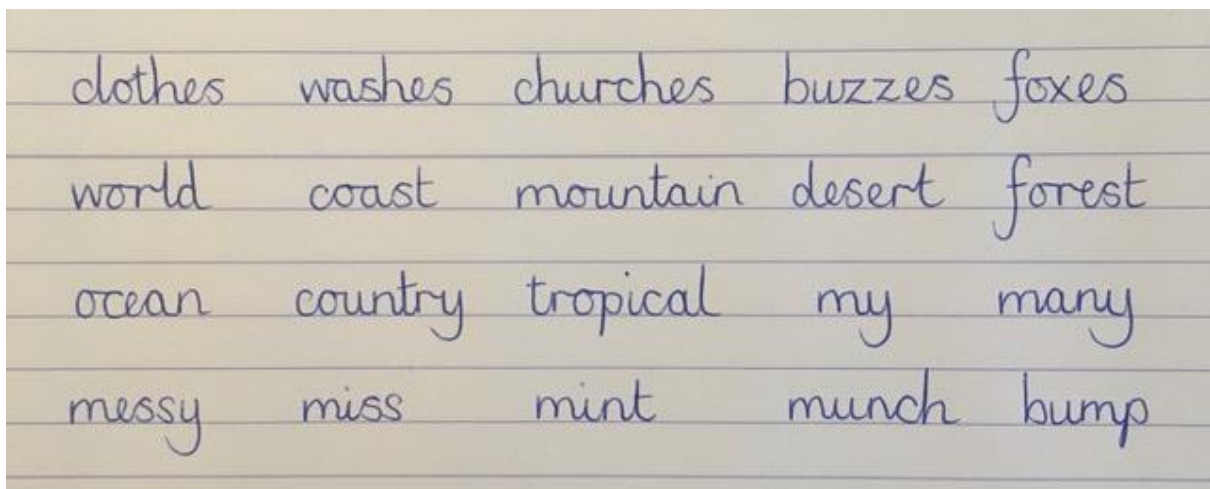 clothes washes churches buzzes foxes
world coast mountain desert forest
ocean country tropical my many
messy miss mint munch bump